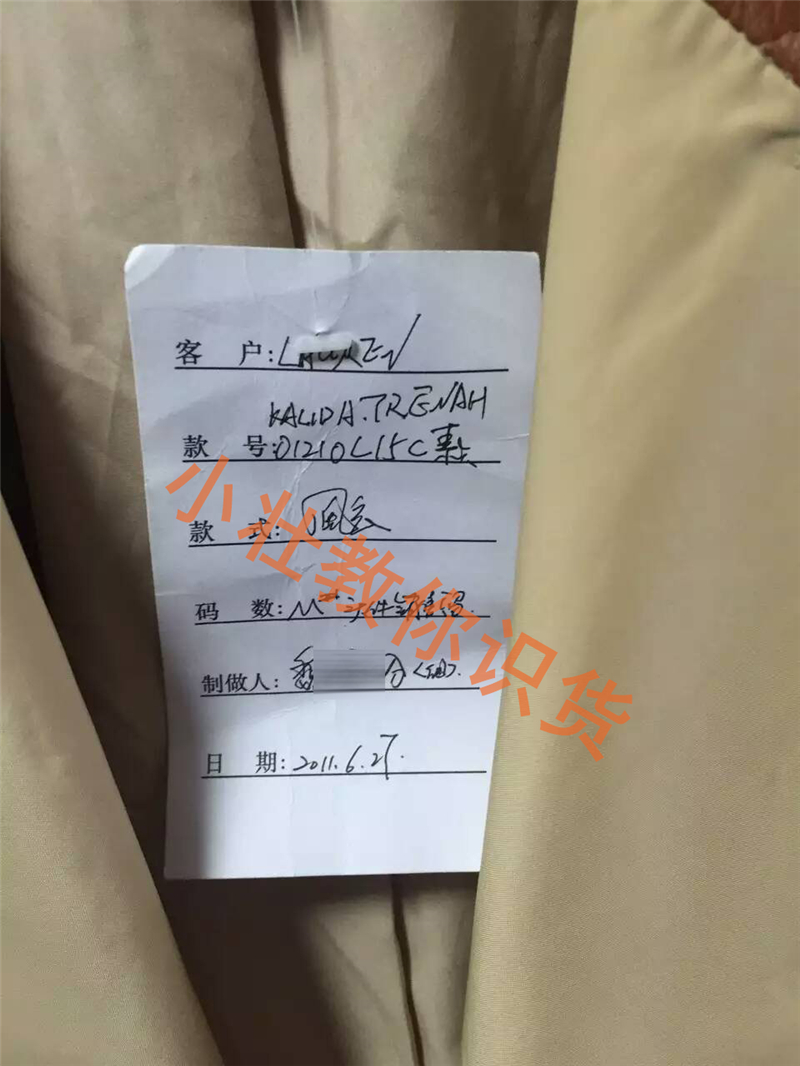 客 户: LAUREN
KALIDA.TRENAH
款 号: 01210L15C
款 式: 风衣
码 数: M
制做人:
日 期: 2011.6.27.
小壮教你识货